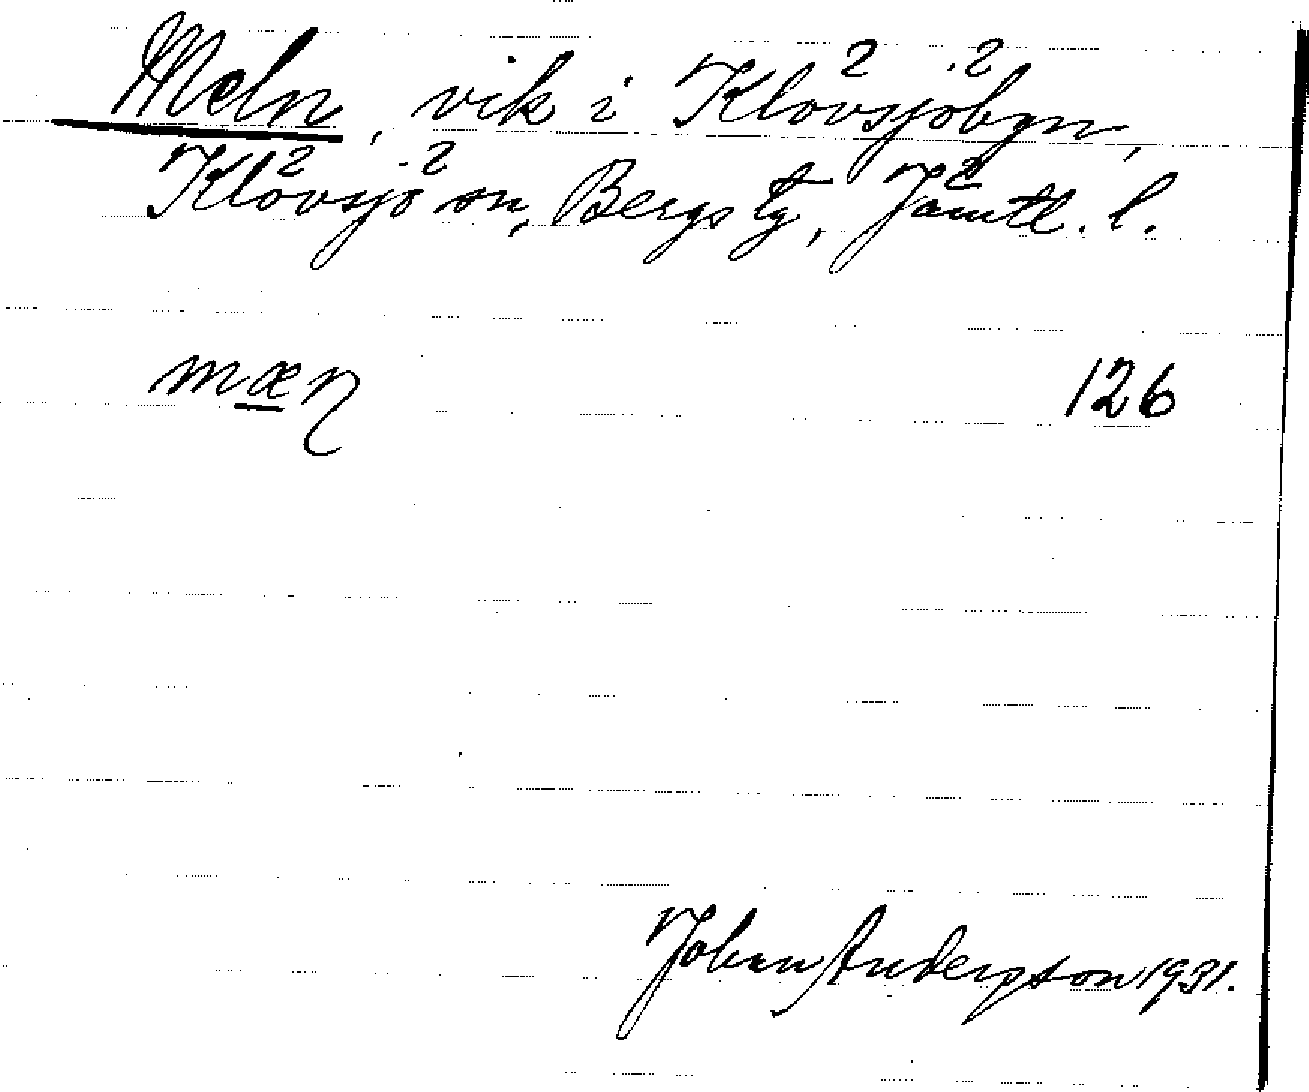 Meln, vik i Klövsjöbyn,
Klövsjö sn, Bergs tg, Jämtl. l.
mæn 126
Johan Anderson 1931.